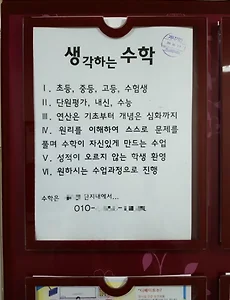 생각하는 수학
Ⅰ. 초등, 중등, 고등, 수험생
Ⅱ. 단원평가, 내신, 수능
Ⅲ. 연산은 기초부터 개념은 심화까지
Ⅳ. 원리를 이해하여 스스로 문제를
풀며 수학이 자신있게 만드는 수업
Ⅴ. 성적이 오르지 않는 학생 환영
Ⅵ. 원하시는 수업과정으로 진행
수학은 단지내에서...
010-